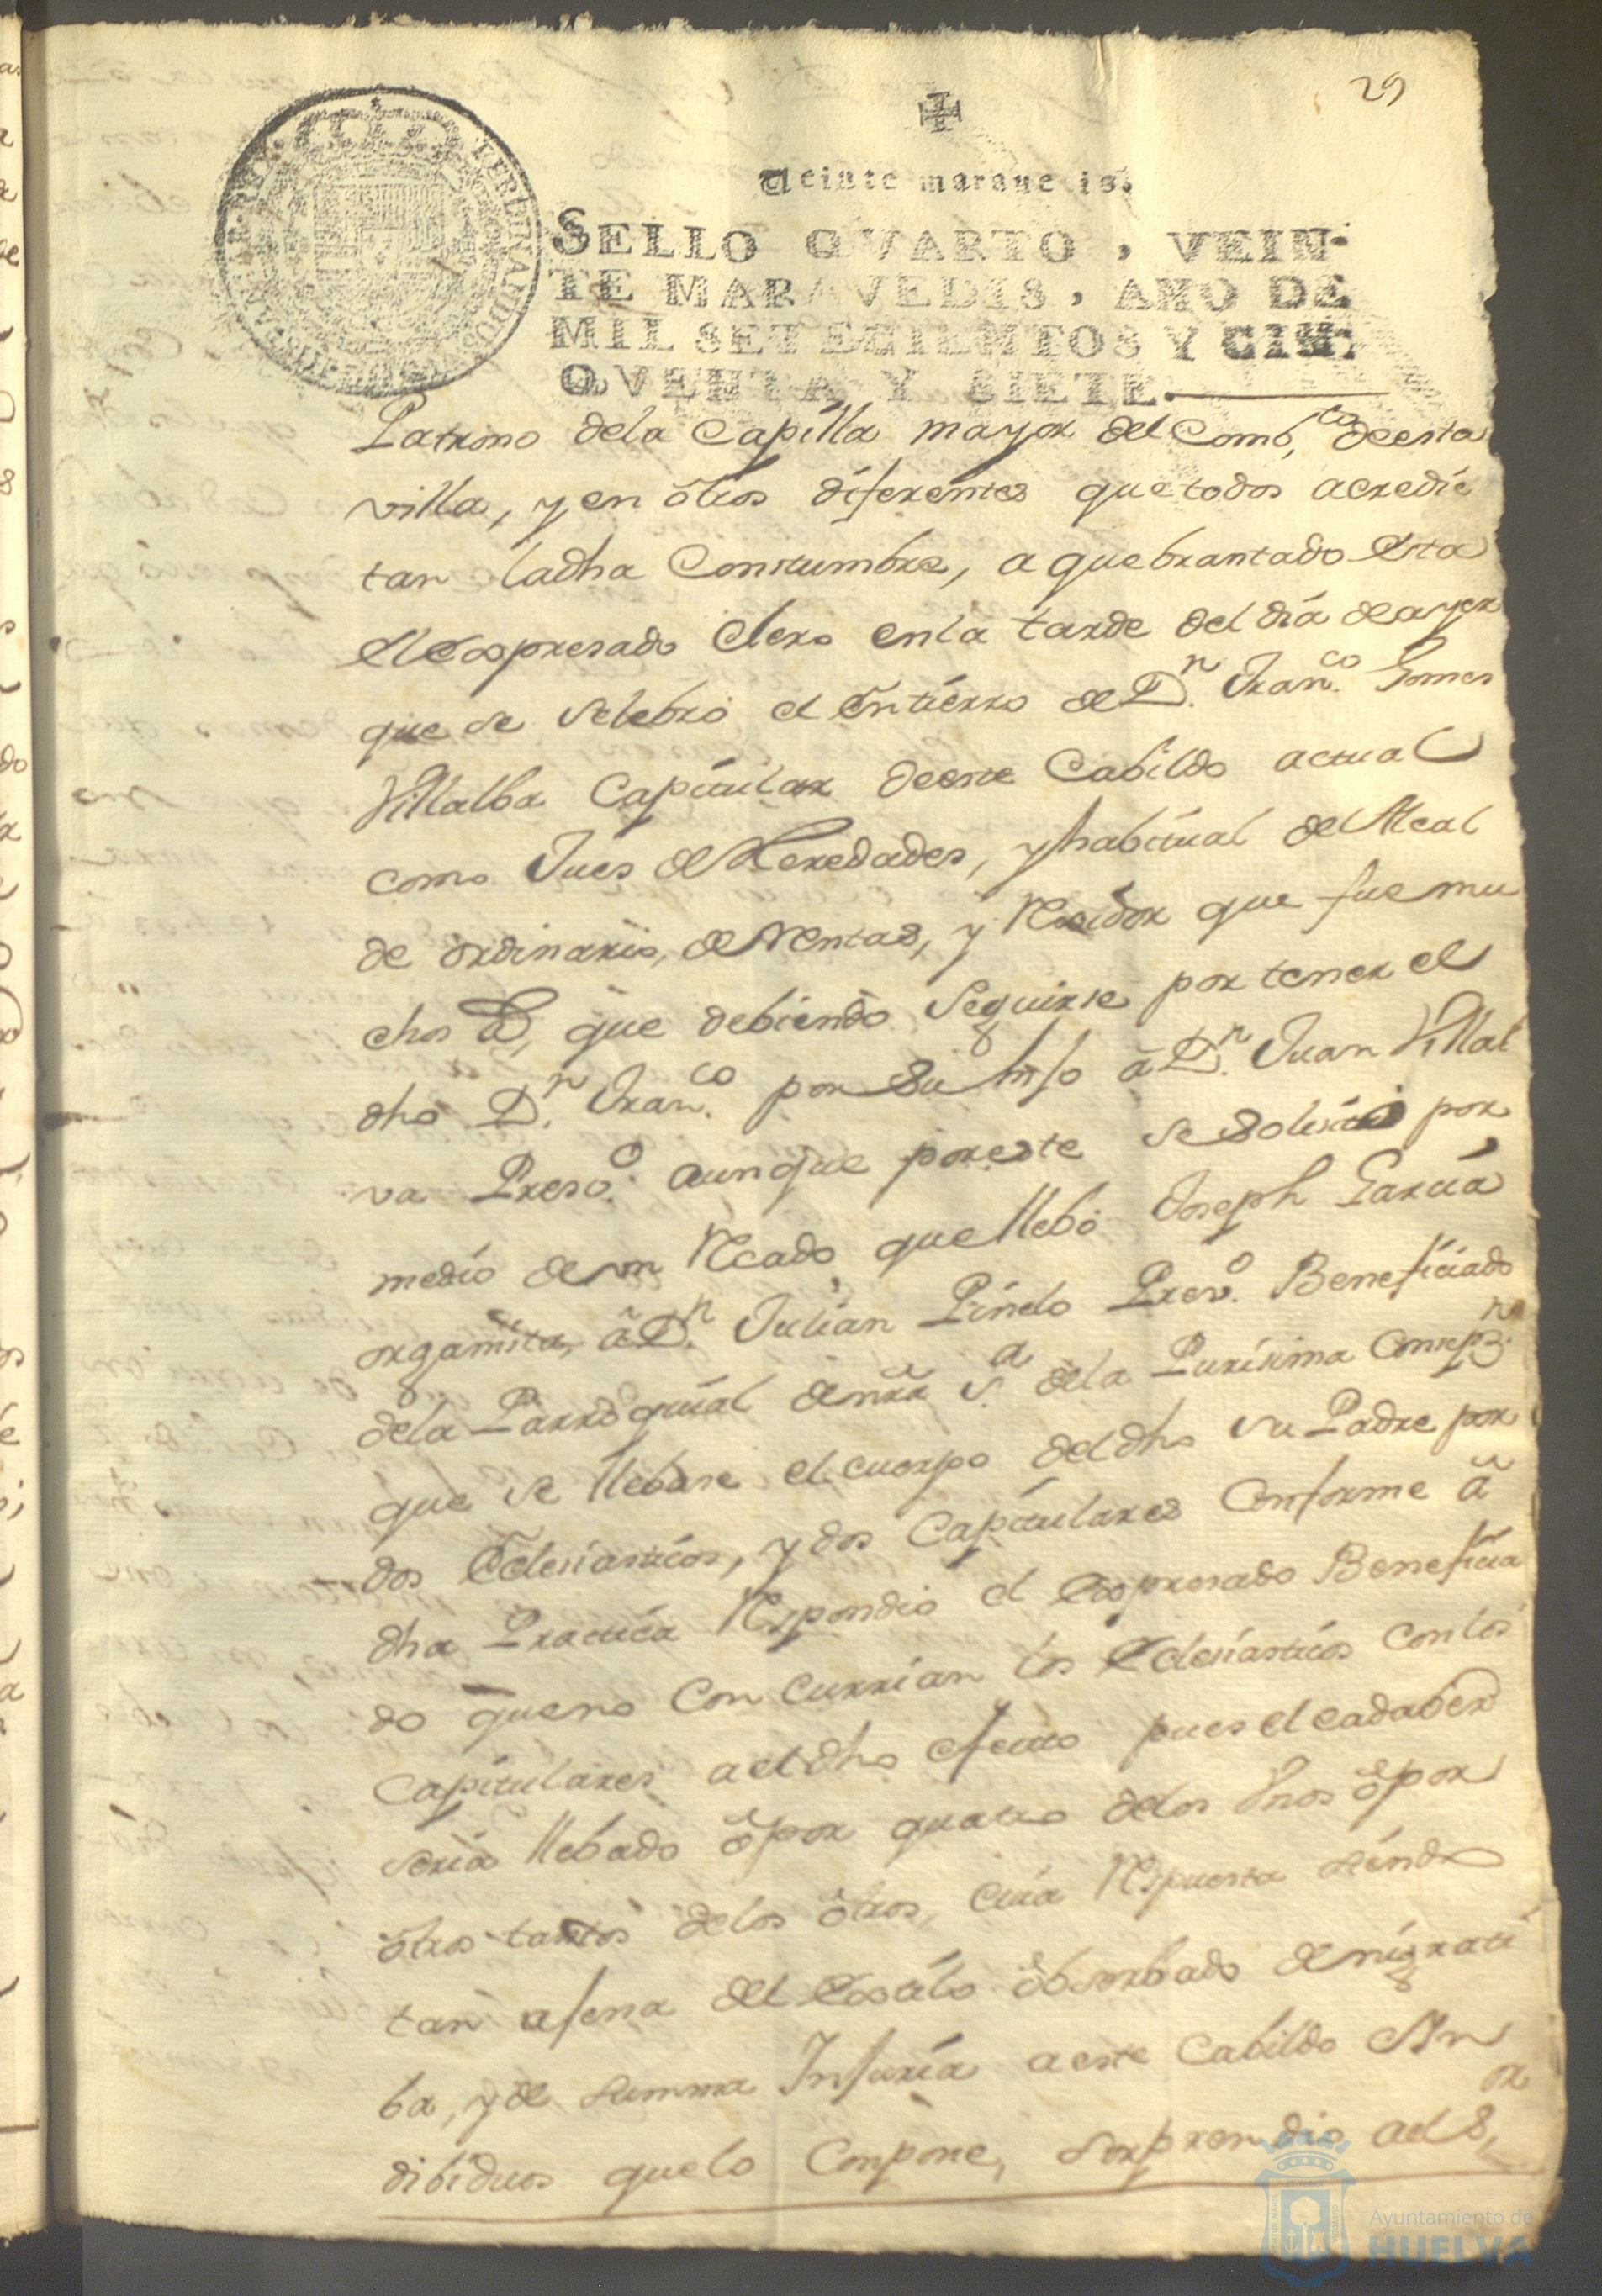 29
Veinte maravedis.
SELLO QVARTO, VEIN-
TE MARAVEDIS, AÑO DE
MIL SETECIENTOS Y CIN-
QVENTA Y SIETE.
Patrono dela Capilla mayor del Comb,to deesta
villa, y en otros diferentes que todos acredi
tan ladha Constumbre, a quebrantado esta
el expresado Clero en la tarde del dia de ayer
que se selebró el Entierro de Dn. Franco. Gomes
Villalba Capitular deeste Cabildo actual
como Jues de Heredades, y habitual del Alcal
de ordinario, de Rentas, y Rexidor que fue mu
chos as, que debiendo seguirse por tener el
dho Dn. Franco. por su hijo a Dn. Juan Villal
va Presvo. aunque poreste se solicitó por
medio de vn Recado que llebó Joseph Garcia
organista, a Dn. Julian Pinelo Prevo. Beneficiado
dela Parroquial denra Sa. dela Purisima Consepzn.
que se llebase el cuerpo del dho su Padre por
dos Eclesiasticos, y dos Capitulares Conforme a
dha Practica Respondio el expresado Beneficia
do que no Concurrian los Eclesiasticos con los
Capitulares a el dho efecto pues el cadaber
seria llebado o por quatro delos Vnos o por
otros tantos delos otros, cuia Respuesta siendo
tan ajena del estilo obserbado denigrati
ba, y de summa Injuria a este Cabildo e Yn
dibiduos que lo Conpone, sorprendio a el S,or
Ayuntamiento de
HUELVA